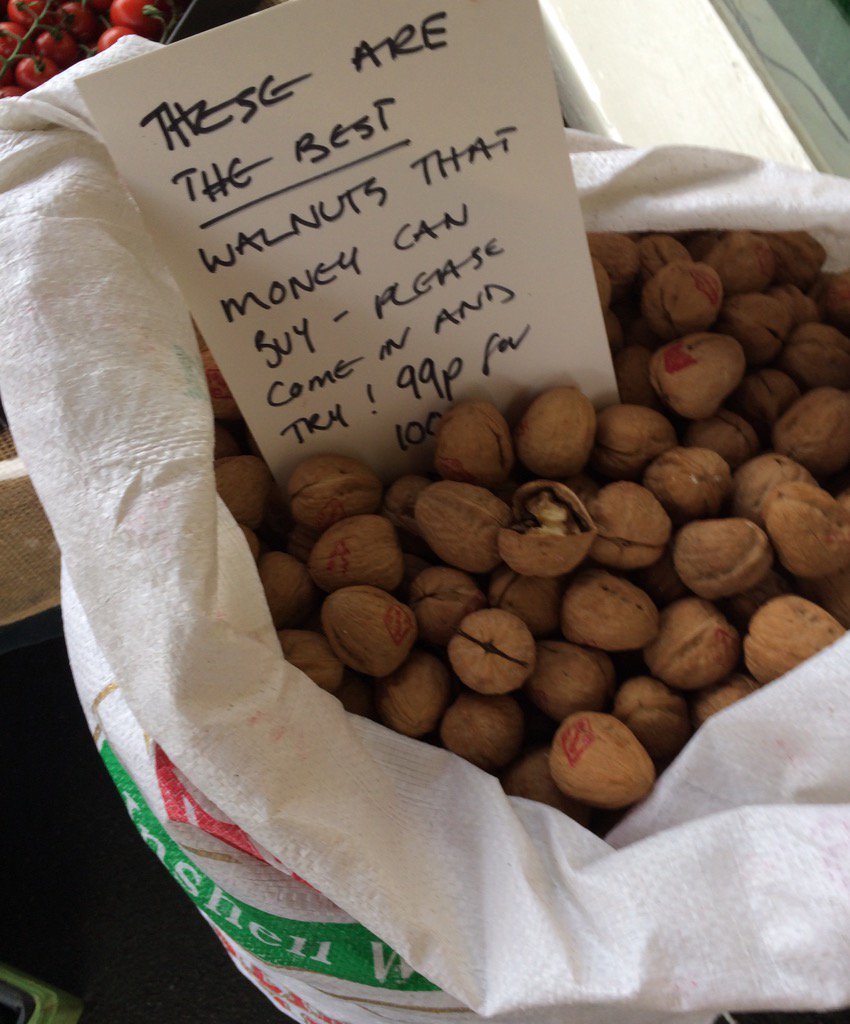 THESE ARE
THE BEST
WALNUTS THAT
MONEY CAN
BUY - PLEASE
COME IN AND
TRY! 99p for
100
nshell W